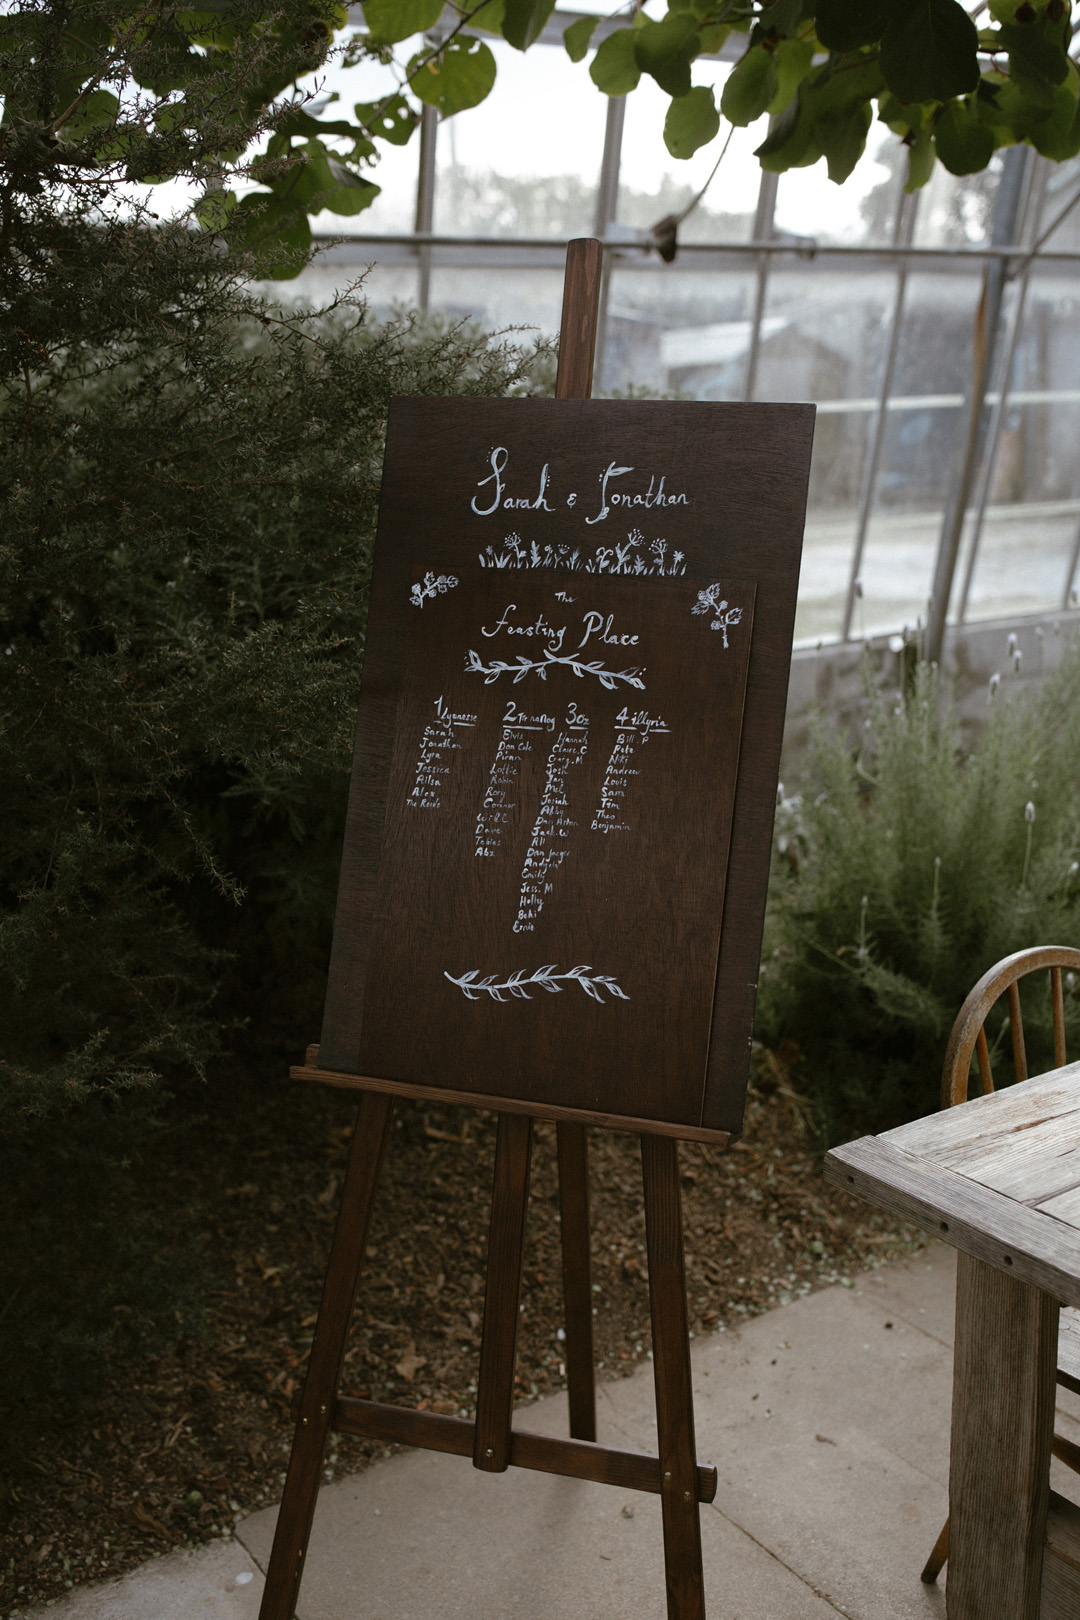 Sarah & Jonathan
The
Feasting Place
1 Lyonesse
Sarah
Jonathan
Lyra
Jessica
Ailsa
Alex
The Reeds
2 Tir na nog
Elvis
Dan Cole
Piran
Lottie
Robin
Rory
Connor
Will
Dave
Tobias
Abz
3 oz
Hannah
Claire.C
Gary.M
Josh
Ian
Mel
Josiah
Abby
Dan Acton
Jack.W
Ali
Dan Jaeger
Emily
Jess.M
Holly
Beki
Ernie
4 illyria
Bill.P
Pete
Niki
Andrew
Louis
Sam
Tim
Theo
Benjamin